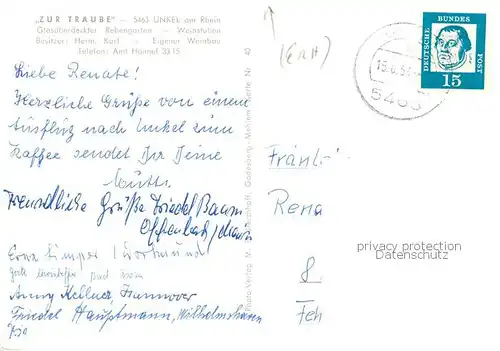 „ZUR TRAUBE" – 5463 UNKEL am Rhein
Glasüberdeckter Rebengarten – Weinstuben
Besitzer: Herm. Korf – Eigener Weinbau
Telefon: Amt Honnef 3315
Liebe Renate!
Herzliche Grüße von einem
Ausflug nach Unkel zum
Kaffee sendet Dir Deine
Mutti.
Freundliche Grüße Friedel Baum
Offenbach/Main
Erna Limper, Dortmund
Anny Kellner, Hannover
Friedel Hauptmann, Wilhelmshaven
Godesberg-Mehlem
Nr. 40
DEUTSCHE BUNDES POST
15
5463
Fräul
Rena
8.
Feh
privacy protection
Datenschutz